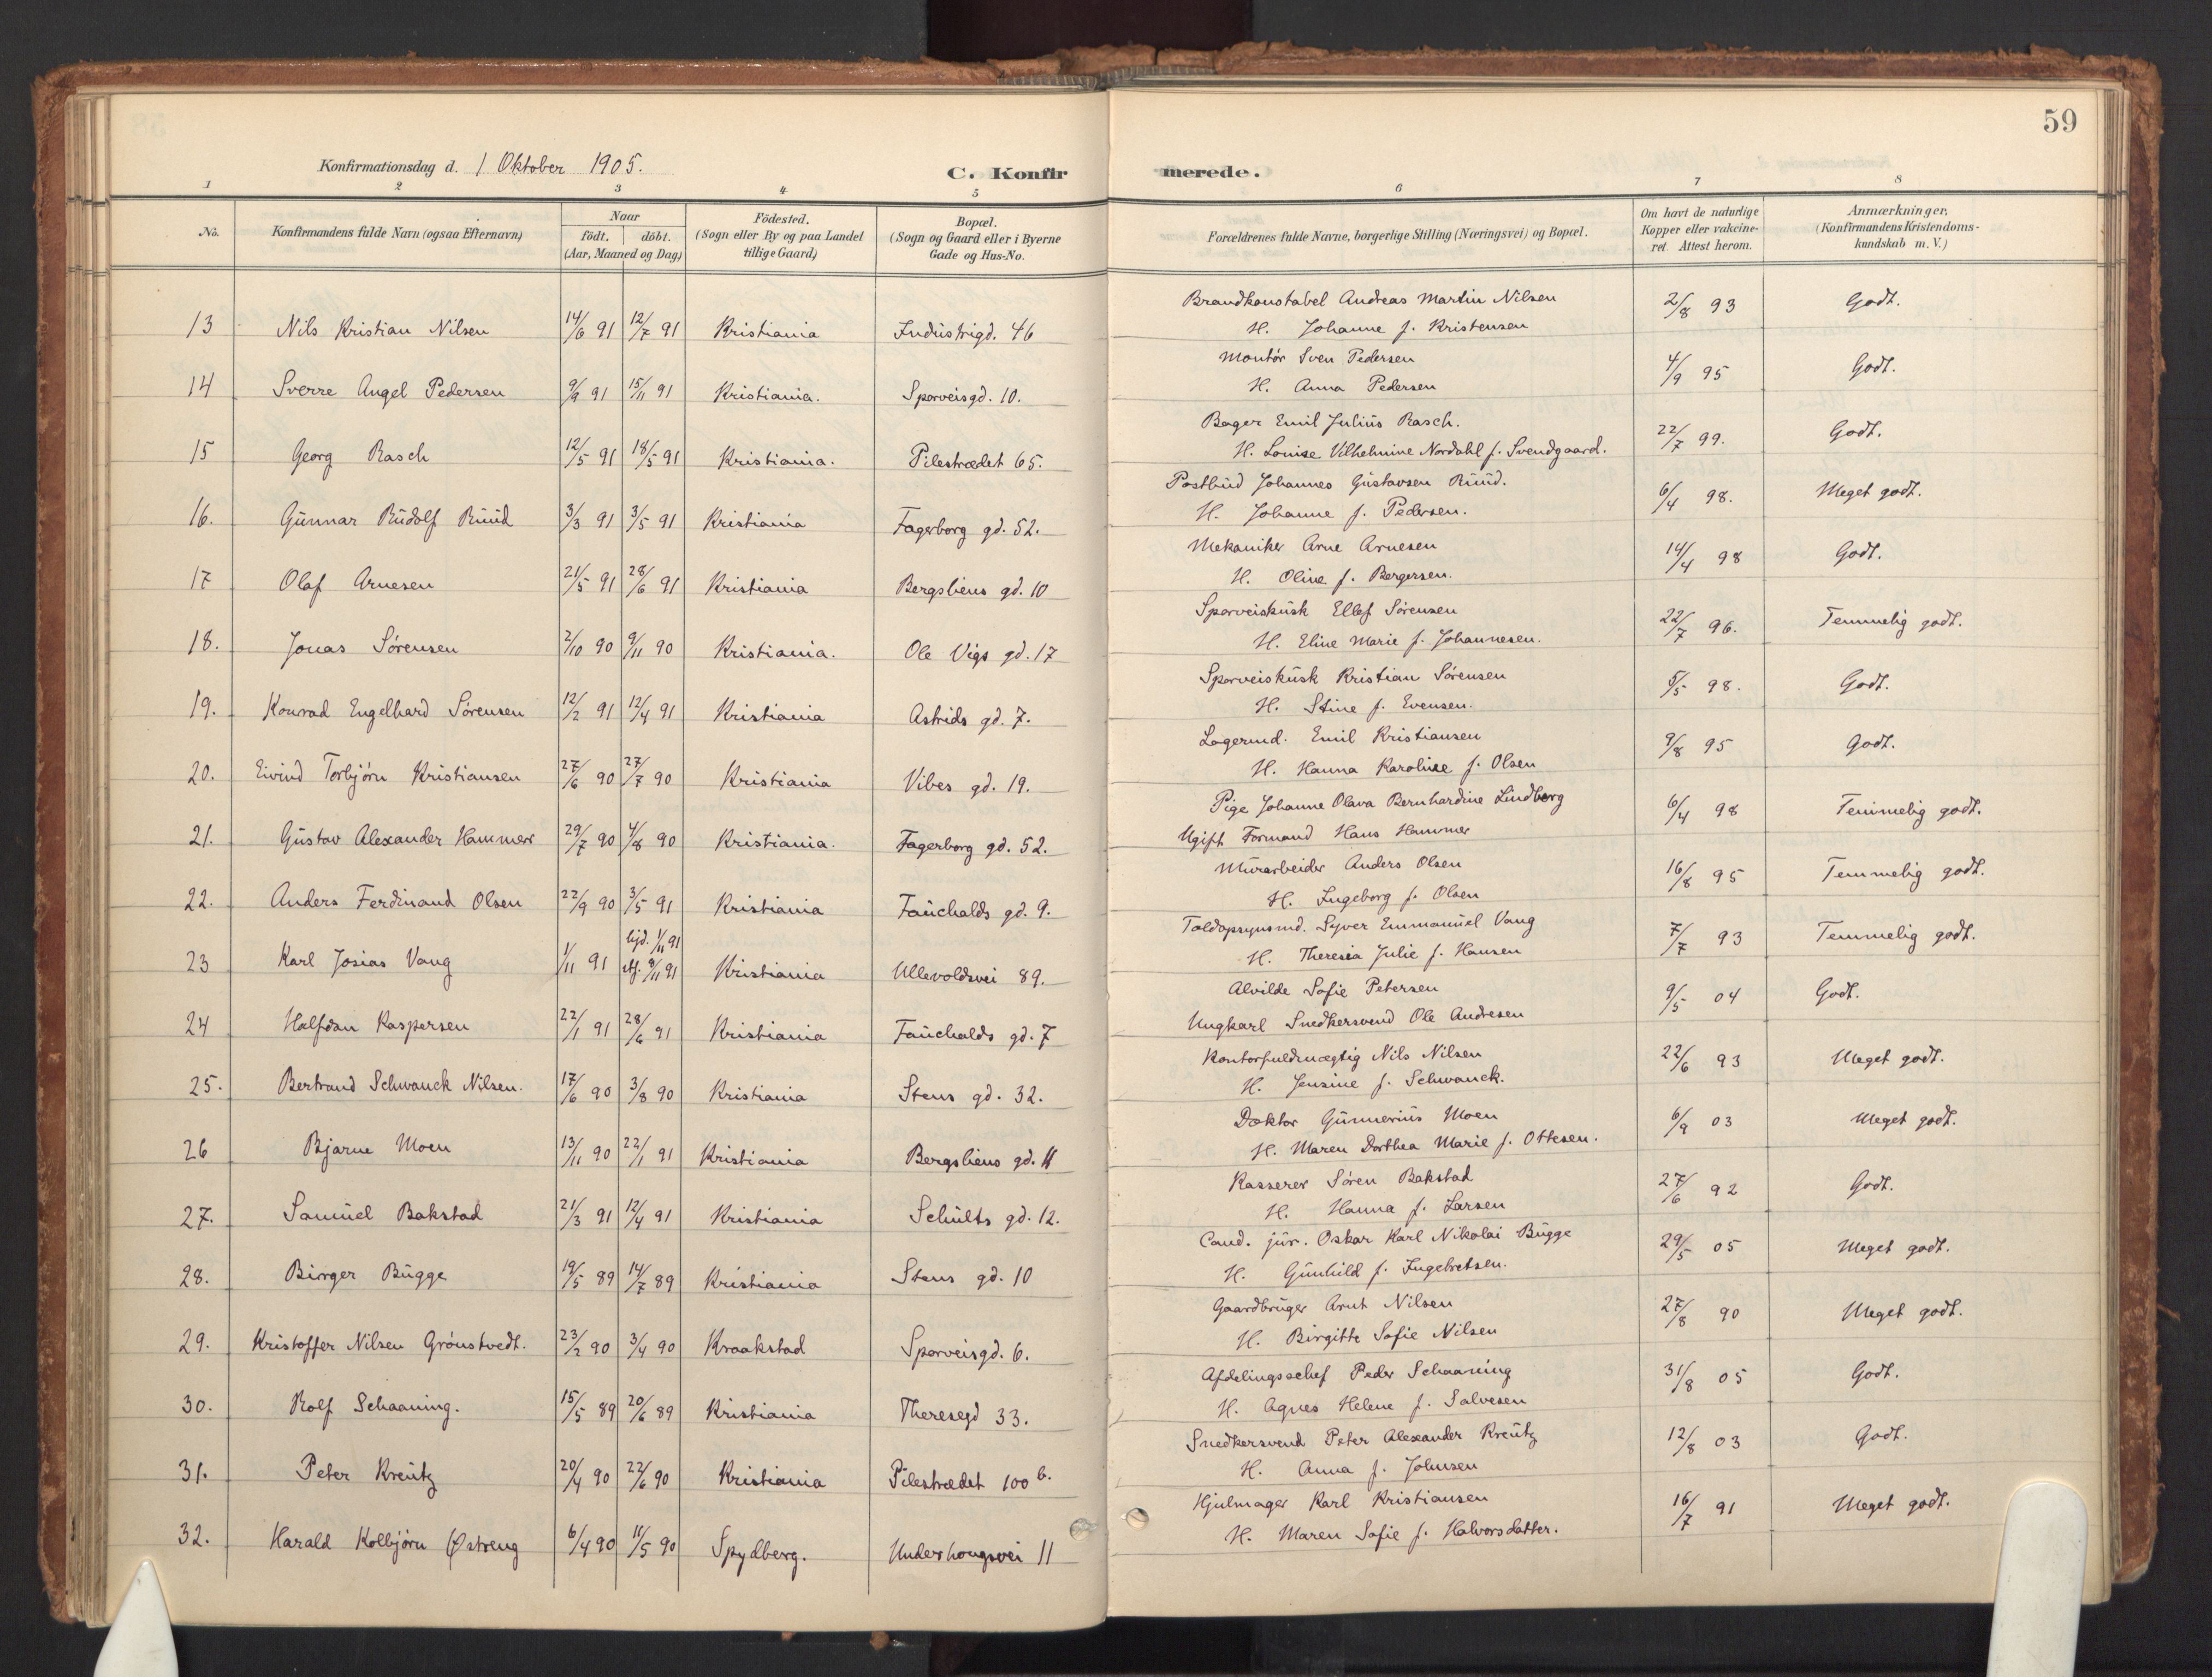 59
Konfirmationsdag d. 1 Oktober 1905.
C. Konfirmerede.
1 2 3 4 5 6 7 8
No.
Konfirmandens fulde Navn (ogsaa Efternavn)
Naar
födt. döbt.
(Aar, Maaned og Dag)
Födested.
(Sogn eller By og paa Landet
tillige Gaard)
Bopæl.
(Sogn og Gaard eller i Byerne
Gade og Hus-No.
Forældrenes fulde Navne, borgerlige Stilling (Næringsvei) og Bopæl.
Om havt de naturlige
Kopper eller vakcine-
ret. Attest herom.
Anmærkninger.
(Konfirmandens Kristendoms-
kundskab m. V.)
13 Nils Kristian Nilsen 14/6 91 12/7 91 Kristiania Industrigd. 46 Brandkonstabel Andreas Martin Nilsen 2/8 93 Godt.
H. Johanne f. Kristensen
14 Sverre Angel Pedersen 9/9 91 15/11 91 Kristiania. Sporveisgd. 10. Montør Sven Pedersen 4/9 95 Godt.
H. Anna Pedersen
15 Georg Rasch 12/5 91 18/5 91 Kristiania. Pilestrædet 65. Bager Emil Julius Rasch. 22/7 99. Godt.
H. Louise Vilhelmine Nordahl f. Svendgaard.
16. Gunnar Rudolf Ruud 3/3 91 3/5 91 Kristiania Fagerborg gd. 52. Postbud Johannes Gustavsen Ruud. 6/4 98. Meget godt.
H. Johanne f. Pedersen.
17 Olaf Arnesen 21/5 91 28/6 91 Kristiania Bergsliens gd. 10 Mekaniker Arne Arnesen 14/4 98 Godt.
H. Oline f. Bergersen.
18. Jonas Sørensen 2/10 90 9/11 90 Kristiania. Ole Vigs gd. 17 Sporveiskusk Ellef Sørensen 22/7 96. Temmelig godt.
H. Eline Marie f. Johannesen.
19. Konrad Engelhard Sørensen 12/2 91 12/4 91 Kristiania Astrids gd. 7. Sporveiskusk Kristian Sørensen 5/5 98. Godt.
H. Stine f. Evensen.
20. Eivind Torbjørn Kristiansen 27/6 90 27/7 90 Kristiania Vibes gd. 19. Lagermd. Emil Kristiansen 9/8 95 Godt.
H. Hanna Karoline f. Olsen
21. Gustav Alexander Hammer 29/7 90 4/8 90 Kristiania. Fagerborg gd. 52. Pige Johanne Olava Bernhardine Lindberg 6/4 98 Temmelig godt.
Ugift Formand Hans Hammer
22. Anders Ferdinand Olsen 22/9 90 3/5 91 Kristiania Fauchalds gd. 9. Murarbeider Anders Olsen 16/8 95 Temmelig godt.
H. Ingeborg f. Olsen
23 Karl Josias Vang 1/11 91 hjd. 1/11 91 Kristiania Ullevoldsvei 89. Toldopsynsmd. Syver Emmanuel Vang 7/7 93 Temmelig godt.
stf. 9/11 91 H. Theresia Julie f. Hansen
24 Halfdan Kaspersen 22/1 91 28/6 91 Kristiania Fauchalds gd. 7 Alvilde Sofie Petersen 9/5 04 Godt.
Ungkarl Snedkersvend Ole Andresen
25. Bertrand Schwanck Nilsen. 17/6 90 3/8 90 Kristiania Stens gd. 32. Kontorfuldmægtig Nils Nilsen 22/6 93 Meget godt.
H. Jensine f. Schwanck.
26 Bjarne Moen 13/11 90 22/1 91 Kristiania Bergsliens gd. 11 Doktor Gunnerius Moen 6/9 03 Meget godt.
H. Maren Dorthea Marie f. Ottesen.
27. Samuel Bakstad 21/3 91 12/4 91 Kristiania Schults gd. 12. Kasserer Søren Bakstad 27/6 92 Godt.
H. Hanna f. Larsen
28. Birger Bugge 19/5 89 14/7 89 Kristiania Stens gd. 10 Cand. jur. Oskar Karl Nikolai Bugge 29/5 05 Meget godt.
H. Gunhild f. Ingebretsen.
29. Kristoffer Nilsen Grønstvedt. 23/2 90 3/4 90 Kraakstad Sporveisgd. 6. Gaardbruger Arnt Nilsen 27/8 90 Meget godt.
H. Birgitte Sofie Nilsen
30. Rolf Schaaning. 15/5 89 20/6 89 Kristiania Theresegd 33. Afdelingschef Peder Schaaning 31/8 05 Godt.
H. Agnes Helene f. Salvesen
31. Peter Kreutz 20/4 90 22/6 90 Kristiania Pilestrædet 100 b. Snedkersvend Peter Alexander Kreutz 12/8 03 Godt.
H. Anna f. Johnsen
32. Harald Kolbjørn Østreng 6/4 90 11/5 90 Spydberg. Underhougsvei 11 Hjulmager Karl Kristiansen 16/7 91 Meget godt.
H. Maren Sofie f. Halvorsdatter.